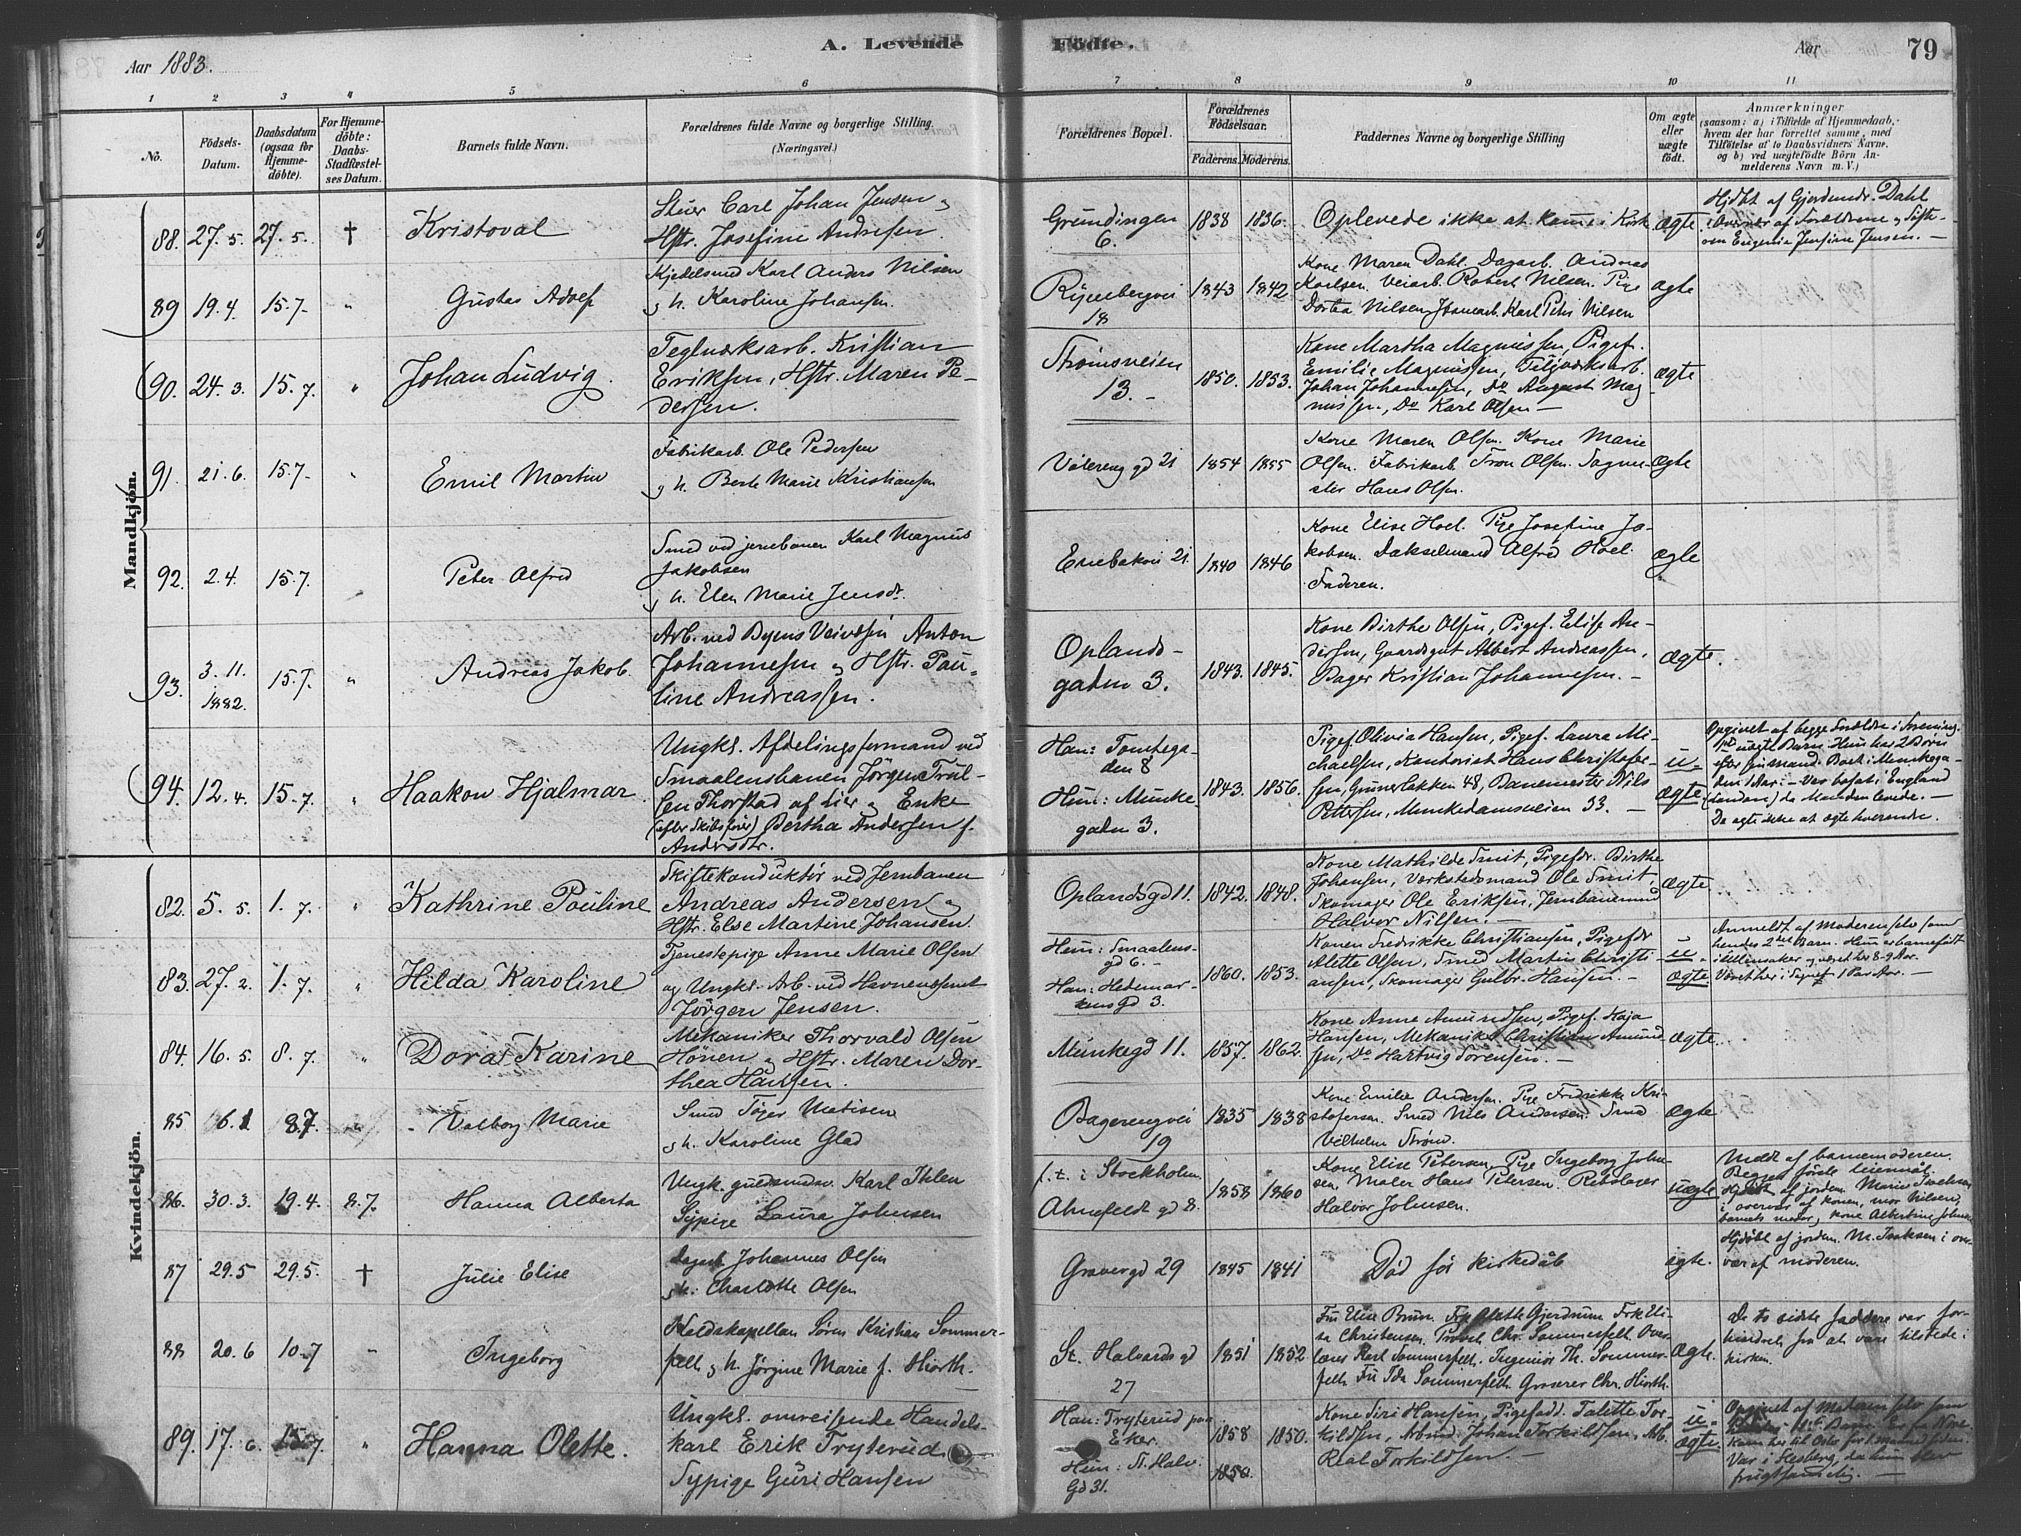 Aar 1883.
A. Levende
Födte.
Aar
79
1 2 3 4 5 6 7 8 9 10 11
No.
Födsels-
Datum.
Daabsdatum
(ogsaa for
Hjemme-
döbte).
For Hjemme-
döbte:
Daabs-
Stadfæstel-
ses Datum.
Barnets fulde Navn.
Forældrenes fulde Navne og borgerlige Stilling.
(Næringsvei.)
Forældrenes Bopæl.
Forældrenes
Födselsaar.
Faderens. Moderens.
Faddernes Navne og borgerlige Stilling
Om ægte
eller
uægte
födt.
Anmærkninger
(saasom: a) i Tilfælde af Hjemmedaab,
hvem der har forrettet samme, med
Tilföielse af to Daabsvidners Navne,
og b) ved uægtefödte Börn An-
melderens Navn m. V.)
Mandkjön.
88. 27. 5. 27. 5. † Kristoval
Stuer Carl Johan Jensen &
Hstr. Josefine Andresen
Grundingen
6.
1838 1836.
Oplevede ikke at komme i Kirke
ægte
Hjdbt af Gjordemdr. Dahl
i Overvær af Forældrene &
Eugenia Jensine Jensen. —
89 19. 4. 15. 7. "
Gustav Adolf
Kjedelsmed Karl Anders Nilsen
& h. Karoline Johansen
18
1843 1842
Kone Maren Dahl. Dagarb. Andreas
Karlsen. Veiarb. Robert Nilsen. Pige
Dortea Nilsen. Karl Peter Nilsen
ægte
90. 24. 3. 15. 7. "
Johan Ludvig.
Teglværksarb. Kristian
Eriksen, Hstr. Maren Pe-
dersen.
Strömsveien
13. —
1850. 1853.
Kone Martha Magnussen, Pigef.
Emilie Magnussen,
Johan Johannesen, Do August Mag-
nussen, Do Karl Olsen —
ægte
91. 21. 6. 15. 7. "
Emil Martin
Fabrikarb. Ole Pedersen
& h. Berte Marie Kristiansen
Vålereng gd 21
1854 1855
Kone Maren Olsen. Kone Marie
Olsen. Fabrikarb. Tron Olsen.
Hans Olsen.
Ægte
92. 2. 4. 15. 7. "
Peter Alfred
Smed ved jernbanen Karl Magnus
Jakobsen
& h. Elen Marie Jensdr.
Enebakvei 21.
1840 1846
Kone Elise Hoel. Pige Josefine Ja-
kobsen. Alfred Hoel.
Faderen.
Ægte
93. 3. 11. 1882. 15. 7. "
Andreas Jakob.
Arb. ved Byens Veivæsen Anton
Johannesen & Hstr. Pau-
line Andreassen.
Oplands-
gaden 3.
1843. 1845.
Kone Birthe Olsen, Pigef. Elise An-
dersen, Gaardsgut Albert Andreassen,
Bager Kristian Johannesen. —
Ægte.
94. 12. 4. 15. 7. "
Haakon Hjalmar
Ungkl. Afdelingsformand ved
Smaalensbanen Jörgen Trul-
sen Thorstad af Lier & Enke
Bertha Andersen f.
Andersdtr.
Han: Tomtega-
den 8
Hun: Munke
gaden 3.
1843. 1856.
Pigef. Olivia Hansen, Pigef. Laura Mi-
chaelsen, Kontorist Hans Christofer-
sen, Grünerløkken 48, Banemester Nils
Pettersen, Munkedamsveien 33. —
u-
ægte
Opgivet af begge Forældre i Forening.
1ste uægte Barn. Hun har 2 Børn
efter sin mand. Boet i Munkega-
den 1 Aar. — Var bosat i England
(London) da Manden levede. —
De agte ikke at ægte hverandre.
Kvindekjön.
82. 5. 5. 1. 7. "
Kathrine Pouline
Skiftekonduktör ved Jernbanen
Andreas Andersen &
Hstr. Else Martine Johansen.
Oplandsgd 11.
1842. 1848.
Kone Mathilde Smit, Pigefdr. Birthe
Johansen, Værkstedsmand Ole Smit,
Skomager Ole Eriksen, Jernbanemand
Halvor Nilsen. —
Ægte
83. 27. 2. 1. 7. "
Hilda Karoline
Tjenestepige Anne Marie Olsen
og Ungkl. Arb. ved Havnevæsenet
Jörgen Jensen.
Hun: Smaalens-
gd 6. —
Han: Hedemar-
kens Gd 3.
1860. 1853.
Konen Fredrikke Christiansen, Pigefdr
Alette Olsen, Smed Martin Christi-
ansen, Skomager Gulbr. Hansen. —
u-
ægte.
Anmeldt af Moderen selv som
hendes 2det Barn. Hun er barnefödt
i Ullensaker og været her 8-9 Aar.
84. 16. 5. 8. 7. "
Dora Karine
Mekaniker Thorvald Olsen
Hönen & Hstr. Maren Dor-
thea Hansen.
Munkegd 11.
1857. 1862.
Kone Anne Amundsen, Pigef. Kaja
Hansen, Mekaniker Christian Amund-
sen, Do Hartvig Sörensen. —
ægte.
85 16. 1 8. 7.
Valborg Marie
Smed Töger Matisen
& h. Karoline Glad
19
1835 1838
Kone Emilie Andersen. Pige Fredrikke Kri-
stofersen. Smed Nils Andersen. Smed
Vilhelm Ström.
Ægte
86. 30. 3. 19. 4. 8. 7.
Hanna Alberta
Ungk. Karl Ihlen
Sypige Laura Johnsen
f. t. i Stockholm.
Ahnefeldt gd 8.
1858 1860
Kone Elise Petersen. Pige Ingeborg John-
sen. Maler Hans Petersen.
Halvor Johnsen.
uægte
Meldt af barnemoderen.
Begges förste leiermål.
Hjdöbt af jordem. Marie
i overvær af konen,
barnets moder, kone Albertine Johnsen
87 29. 5 29. 5. †
Julie Elise
Dagarb. Johannes Olsen
& h. Charlotte Olsen
Gravergd 29
1845 1841
Död för kirkedåb
ægte.
Hjdöbt af jordem. M. Isaksen i over-
vær af moderen.
88 20. 6 10. 7 "
Ingeborg
Kaldskapellan Sören Kristian Sommer-
felt & h. Jörgine Marie f. Hiorth.
St. Halvards gd
27
1851 1852
Fru Elisa Bruun. Frk Alette Gjerdrum Frk Eli-
sa Christensen. Provst Chr. Sommerfelt Over-
lærer Karl Sommerfelt. Ingeniör Th. Sommer-
felt Fru Ida Sommerfelt Grosserer Chr. Hiorth.
Ægte.
De to sidste faddere var for-
hindret fra at være tilstede i
kirken.
89. 17. 6. 15. 7. "
Hanna Olette.
Ungkl. omreisende Handels-
karl Erik Tryterud
Sypige Guri Hansen
Han: Tryterud paa
Eker.
Hun: St. Halv.
Gd 31.
1858
1850
1850.
Kone Siri Hansen, Pigefadr. Talette Tor-
kildsen, Arbmd. Johan Torkildsen, Arb.
Real Torkildsen. —
u-
ægte.
Opgivet af Moderen selv som